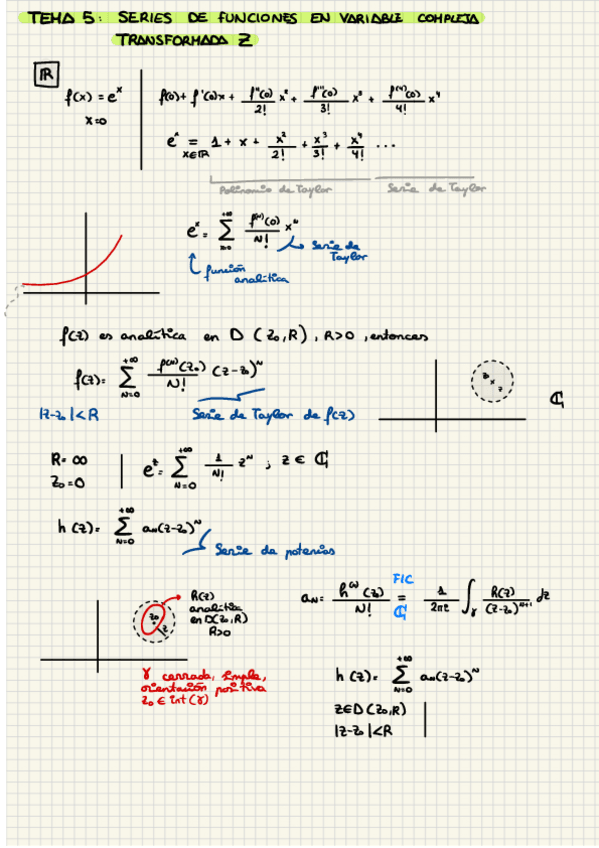 TEMA 5: SERIES DE FUNCIONES EN VARIABLE COMPLEJA
TRANSFORMADA Z
ℝ
f(x) = eˣ
x=0
f(0) + f'(0)x + f''(0)/2! x² + f'''(0)/3! x³ + f⁽⁴⁾(0)/4! x⁴
eˣ = 1 + x + x²/2! + x³/3! + x⁴/4! ...
x∈ℝ
Polinomio de Taylor
Serie de Taylor
eˣ = Σ f⁽ᴺ⁾(0)/N! xᴺ
+∞
N=0
Serie de Taylor
función analítica
f(z) es analítica en D (z₀,R), R>0, entonces
f(z) = Σ f⁽ᴺ⁾(z₀)/N! (z-z₀)ᴺ
+∞
N=0
|z-z₀|<R
Serie de Taylor de f(z)
z₀
z
ℂ
R= ∞
z₀=0
eᶻ = Σ 1/N! zᴺ ; z ∈ ℂ
+∞
N=0
h(z) = Σ aₙ(z-z₀)ᴺ
+∞
N=0
Serie de potencias
z₀
z
h(z)
analítica
en D(z₀,R)
R>0
γ cerrada, simple,
orientación positiva
z₀ ∈ int(γ)
aₙ = h⁽ᴺ⁾(z₀)/N! = 1/2πi ∫γ h(z)/(z-z₀)ᴺ⁺¹ dz
FIC
ℂ
h(z) = Σ aₙ(z-z₀)ᴺ
+∞
N=0
z∈D(z₀,R)
|z-z₀|<R